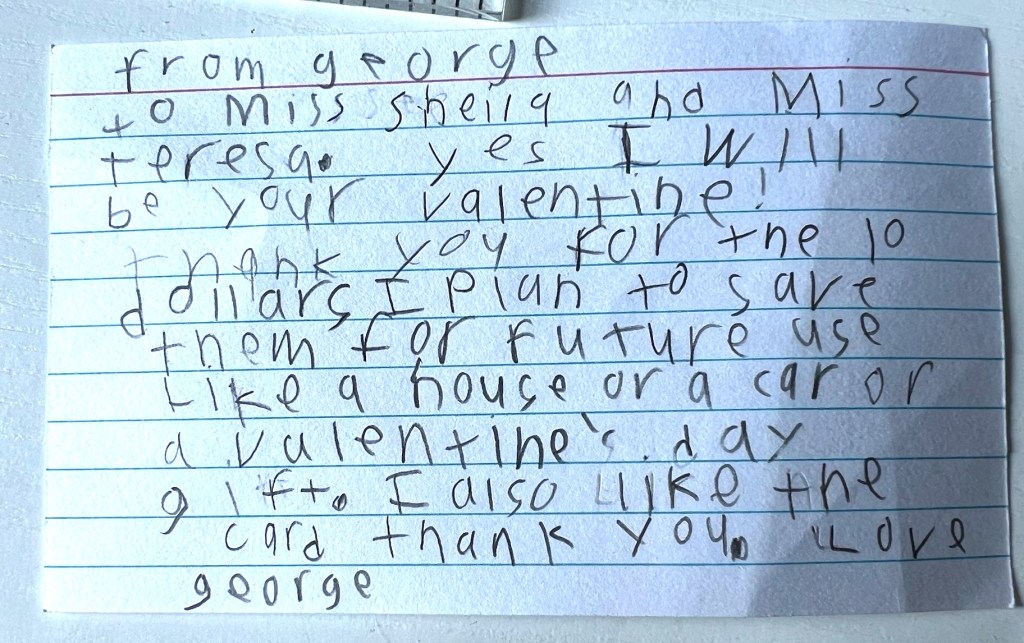 from george
to Miss sheila and Miss
teresa. yes I Will
be your valentine!
thank you for the 10
dollars I Plan to save
them for future use
Like a house or a car or
a valentine's day
gift. I also like the
card thank you. Love
george